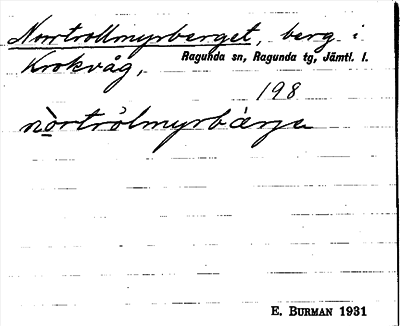 Norrtrollmyrberget, berg i
Krokvåg, Ragunda sn, Ragunda tg, Jämtl. l.
198
nòrtrölmyrbárje
E. BURMAN 1931